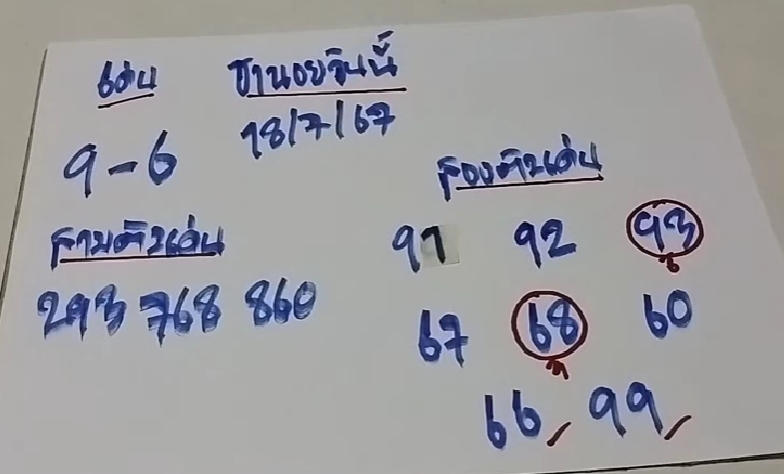 เด่น
ฮานอยวันนี้
18/7/67
9-6
สองตัวเด่น
สามตัวเด่น
91 92 93
293 768 860
67 68 60
66 99